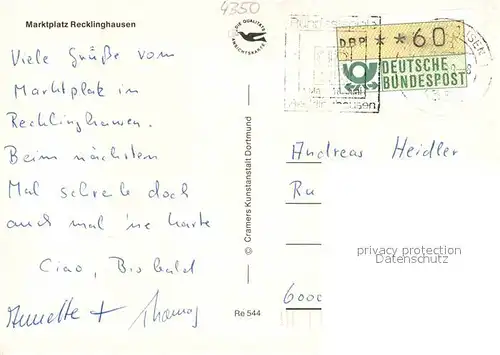 4350
Marktplatz Recklinghausen
DIE QUALITÄTS
ANSICHTSKARTE
DBP * * 60
DEUTSCHE
BUNDESPOST
Viele Grüße vom
Marktplatz in
Recklinghausen.
Beim nächsten
Mal schreib doch
auch mal 'ne Karte
Ciao, Bis bald
Annette + Thomas
© Cramers Kunstanstalt Dortmund
Re 544
Andreas Heidler
Ru
privacy protection
Datenschutz
6000